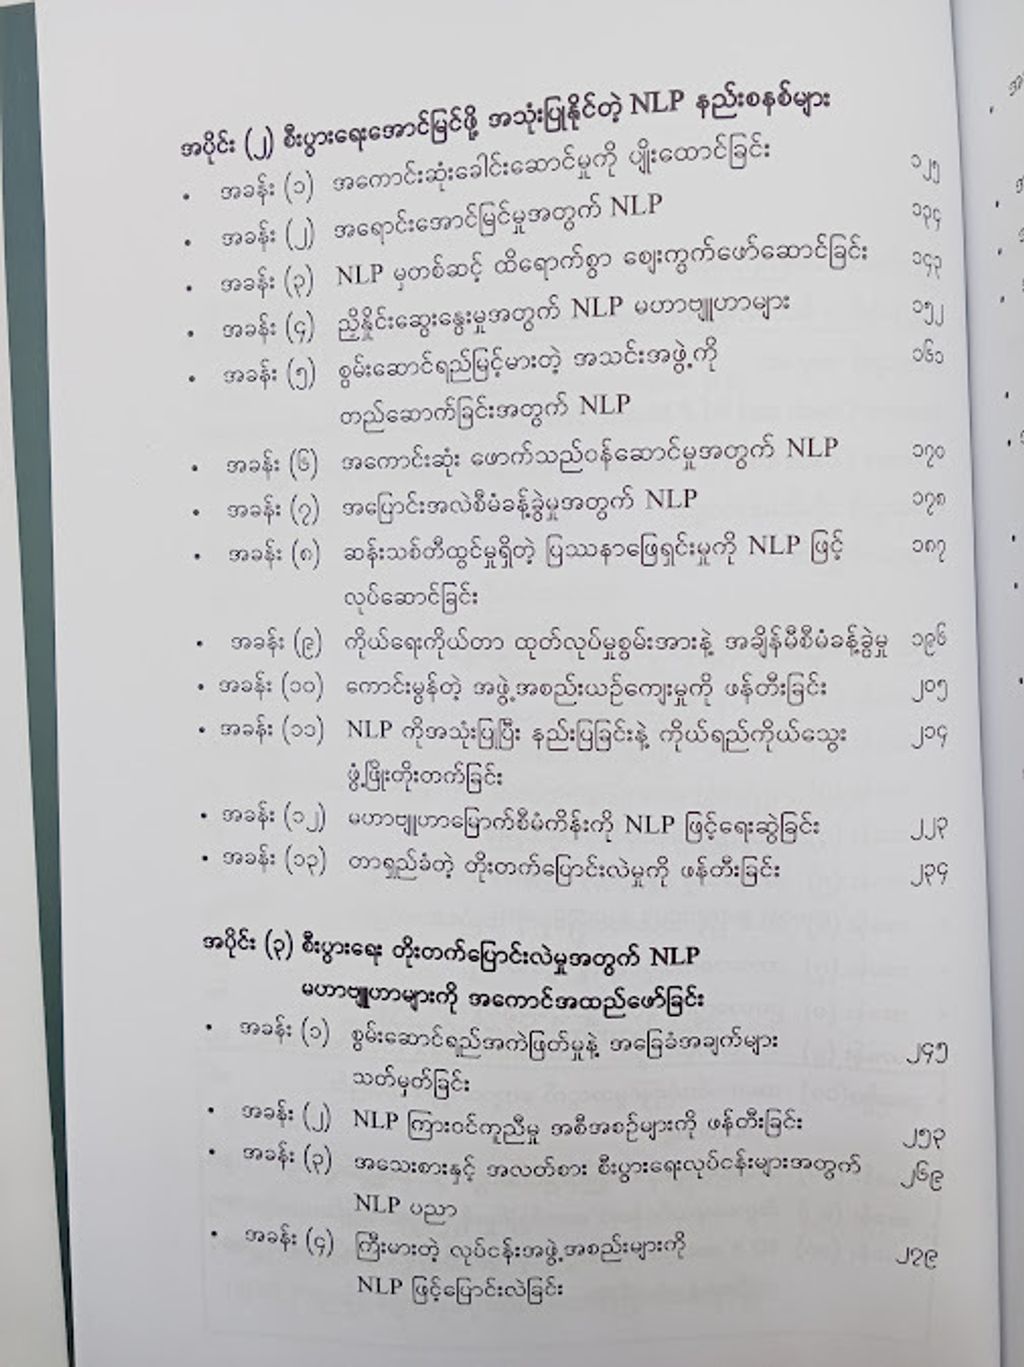 အပိုင်း (၂) စီးပွားရေးအောင်မြင်ဖို့ အသုံးပြုနိုင်တဲ့ NLP နည်းစနစ်များ
• အခန်း (၁) အကောင်းဆုံးခေါင်းဆောင်မှုကို ပျိုးထောင်ခြင်း ၁၂၅
• အခန်း (၂) အရောင်းအောင်မြင်မှုအတွက် NLP ၁၃၄
• အခန်း (၃) NLP မှတစ်ဆင့် ထိရောက်စွာ ဈေးကွက်ဖော်ဆောင်ခြင်း ၁၄၃
• အခန်း (၄) ညှိနှိုင်းဆွေးနွေးမှုအတွက် NLP မဟာဗျူဟာများ ၁၅၂
• အခန်း (၅) စွမ်းဆောင်ရည်မြင့်မားတဲ့ အသင်းအဖွဲ့ကို ၁၆၁
တည်ဆောက်ခြင်းအတွက် NLP
• အခန်း (၆) အကောင်းဆုံး ဖောက်သည်ဝန်ဆောင်မှုအတွက် NLP ၁၇၀
• အခန်း (၇) အပြောင်းအလဲစီမံခန့်ခွဲမှုအတွက် NLP ၁၇၈
• အခန်း (၈) ဆန်းသစ်တီထွင်မှုရှိတဲ့ ပြဿနာဖြေရှင်းမှုကို NLP ဖြင့် ၁၈၇
လုပ်ဆောင်ခြင်း
• အခန်း (၉) ကိုယ်ရေးကိုယ်တာ ထုတ်လုပ်မှုစွမ်းအားနဲ့ အချိန်မီစီမံခန့်ခွဲမှု ၁၉၆
• အခန်း (၁၀) ကောင်းမွန်တဲ့ အဖွဲ့အစည်းယဉ်ကျေးမှုကို ဖန်တီးခြင်း ၂၀၅
• အခန်း (၁၁) NLP ကိုအသုံးပြုပြီး နည်းပြခြင်းနဲ့ ကိုယ်ရည်ကိုယ်သွေး ၂၁၄
ဖွံ့ဖြိုးတိုးတက်ခြင်း
• အခန်း (၁၂) မဟာဗျူဟာမြောက်စီမံကိန်းကို NLP ဖြင့်ရေးဆွဲခြင်း ၂၂၃
• အခန်း (၁၃) တာရှည်ခံတဲ့ တိုးတက်ပြောင်းလဲမှုကို ဖန်တီးခြင်း ၂၃၄
အပိုင်း (၃) စီးပွားရေး တိုးတက်ပြောင်းလဲမှုအတွက် NLP
မဟာဗျူဟာများကို အကောင်အထည်ဖော်ခြင်း
• အခန်း (၁) စွမ်းဆောင်ရည်အကဲဖြတ်မှုနဲ့ အခြေခံအချက်များ ၂၄၅
သတ်မှတ်ခြင်း
• အခန်း (၂) NLP ကြားဝင်ကူညီမှု အစီအစဉ်များကို ဖန်တီးခြင်း ၂၅၃
• အခန်း (၃) အသေးစားနှင့် အလတ်စား စီးပွားရေးလုပ်ငန်းများအတွက် ၂၆၉
NLP ပညာ
• အခန်း (၄) ကြီးမားတဲ့ လုပ်ငန်းအဖွဲ့အစည်းများကို ၂၇၉
NLP ဖြင့်ပြောင်းလဲခြင်း